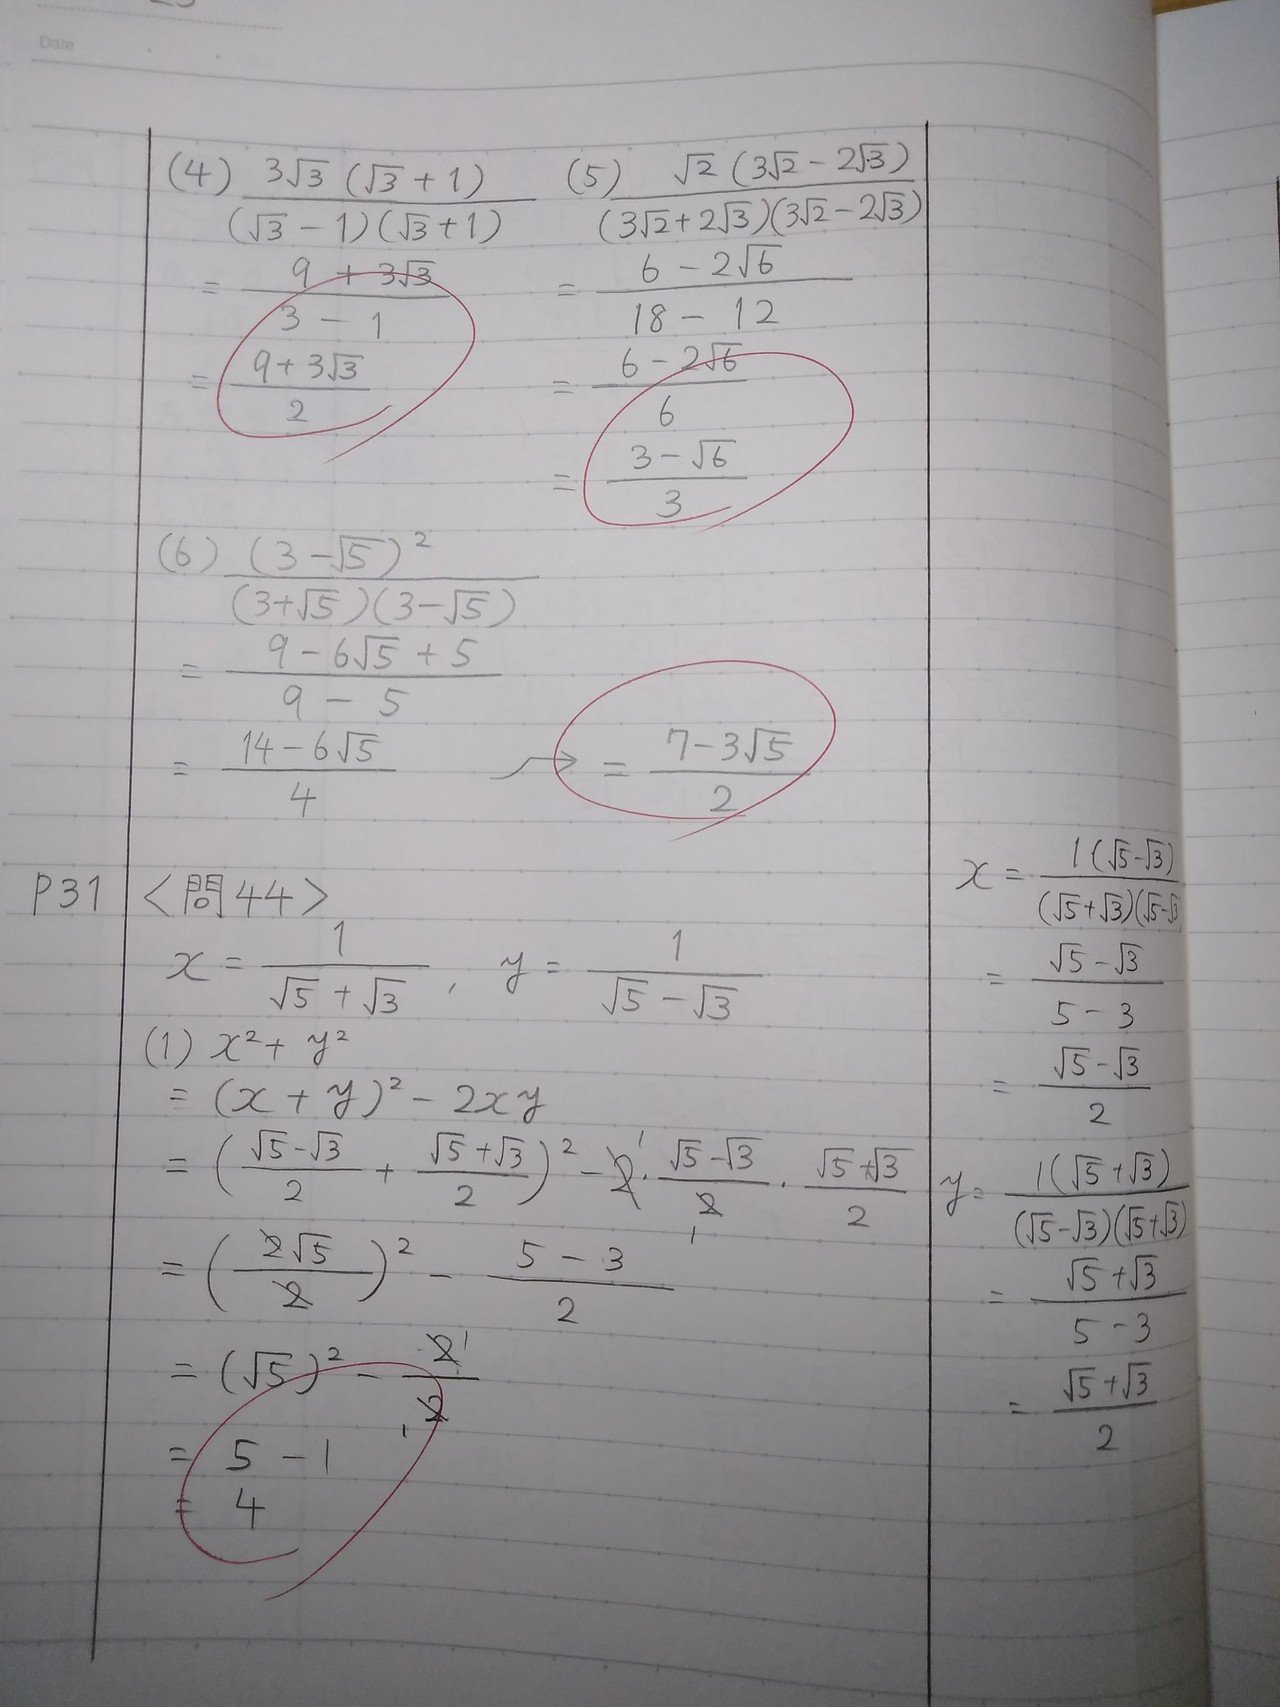 Date
(4) 3√3 (√3 + 1) / (√3 − 1)(√3 + 1)
= 9 + 3√3 / 3 − 1
= 9 + 3√3 / 2
(5) √2 (3√2 − 2√3) / (3√2 + 2√3)(3√2 − 2√3)
= 6 − 2√6 / 18 − 12
= 6 − 2√6 / 6
= 3 − √6 / 3
(6) (3 − √5)² / (3+√5)(3−√5)
= 9 − 6√5 + 5 / 9 − 5
= 14 − 6√5 / 4
→ = 7 − 3√5 / 2
P31 <問44>
x = 1 / √5 + √3 , y = 1 / √5 − √3
(1) x² + y²
= (x + y)² − 2xy
= (√5−√3 / 2 + √5+√3 / 2)² − 2 · √5−√3 / 2 · √5+√3 / 2
= (2√5 / 2)² − 5 − 3 / 2
= (√5)² − 2 / 2
= 5 − 1
= 4
x = 1(√5−√3) / (√5+√3)(√5−√3
= √5 − √3 / 5 − 3
= √5 − √3 / 2
y = 1(√5+√3) / (√5−√3)(√5+√3)
= √5 + √3 / 5 − 3
= √5 + √3 / 2